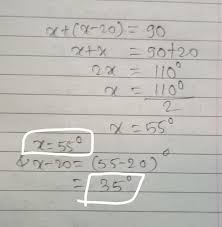 x+(x-20) = 90
x+x = 90+20
2x = 110°
x = 110°/2
x = 55°
x = 55°
& x-20 = (55-20)°
= 35°